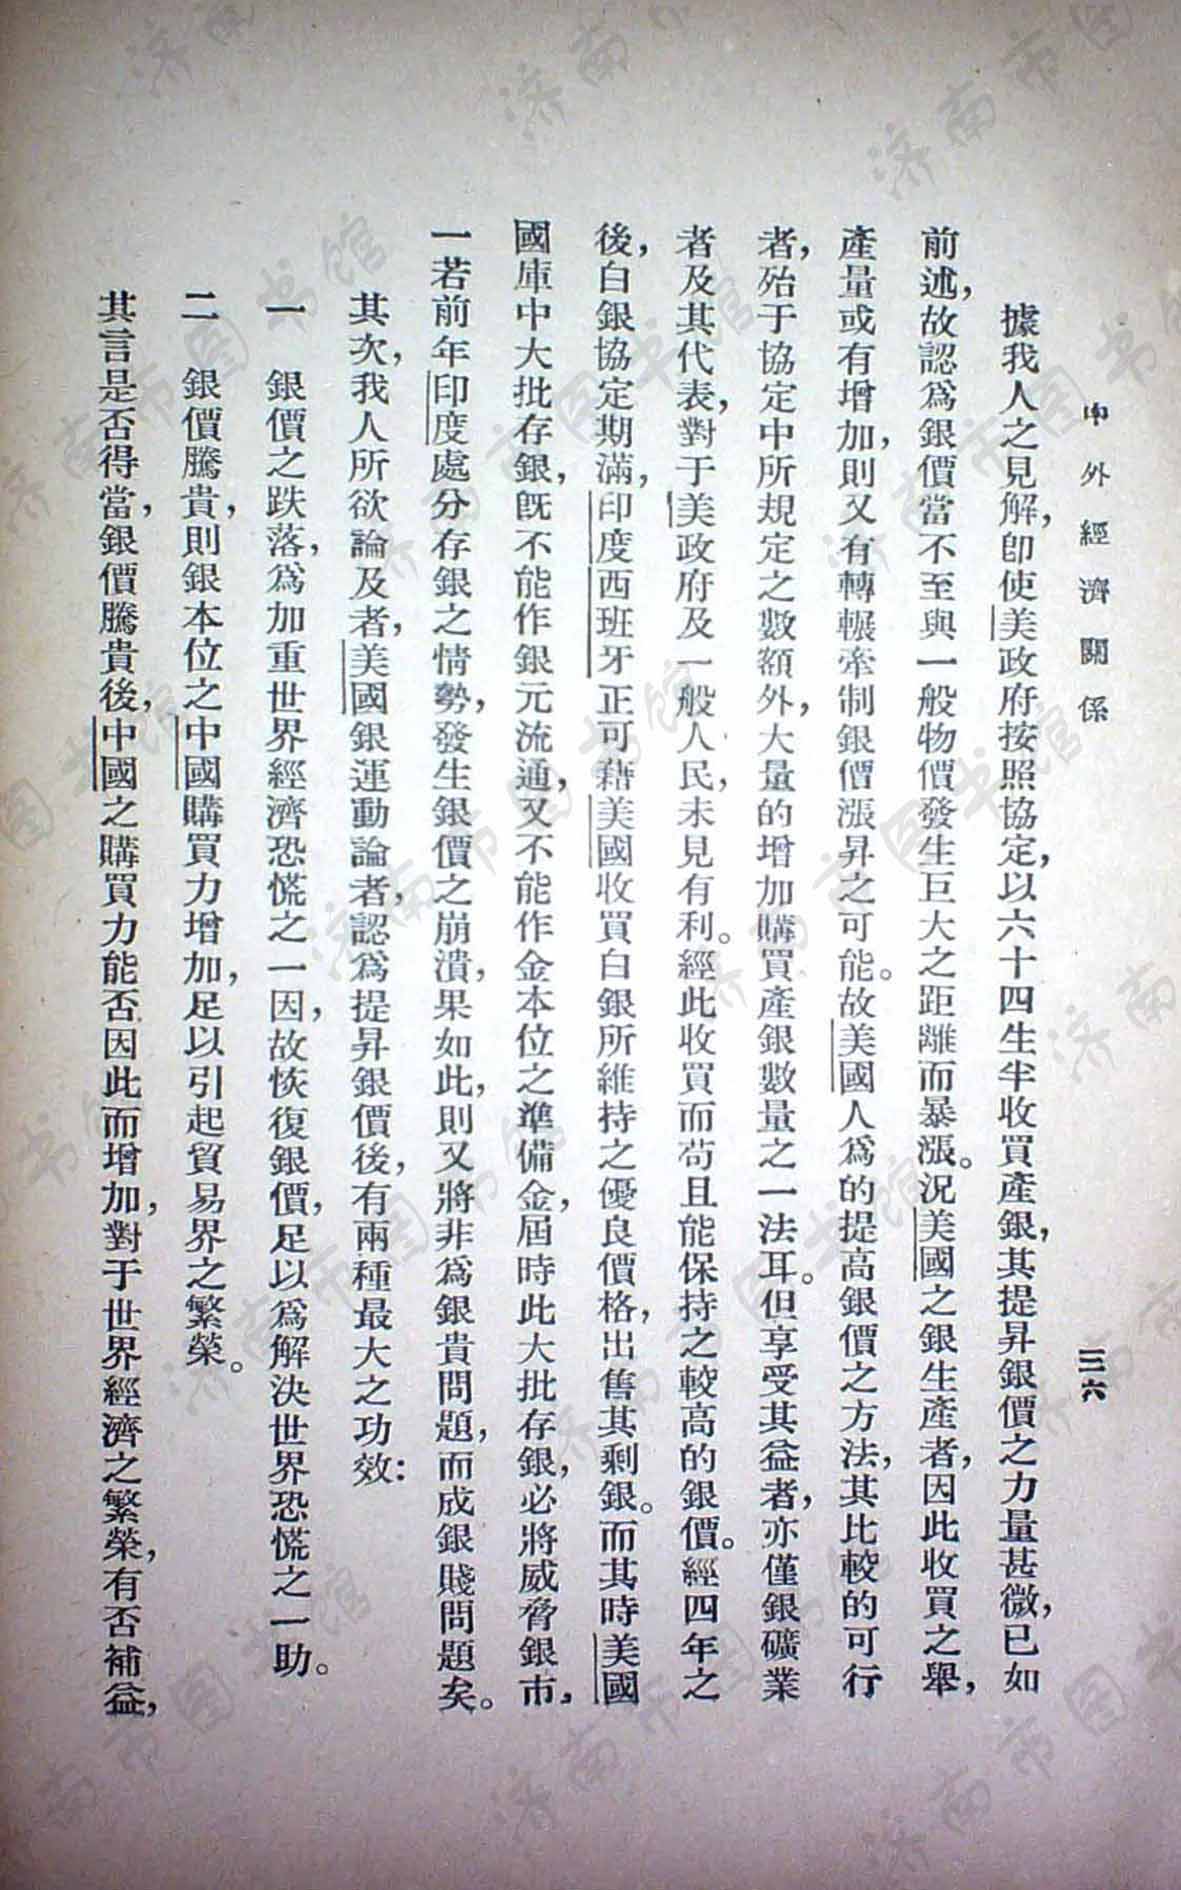 中外經濟關係
三六
據我人之見解，卽使美政府按照協定，以六十四生半收買產銀，其提昇銀價之力量甚微，已如
前述，故認爲銀價當不至與一般物價發生巨大之距離而暴漲。況美國之銀生產者，因此收買之舉，
產量或有增加，則又有轉輾牽制銀價漲昇之可能。故美國人爲的提高銀價之方法，其比較的可行
者，殆于協定中所規定之數額外，大量的增加購買產銀數量之一法耳。但享受其益者，亦僅銀礦業
者及其代表，對于美政府及一般人民，未見有利。經此收買而苟且能保持之較高的銀價。經四年之
後，白銀協定期滿，印度西班牙正可藉美國收買白銀所維持之優良價格，出售其剩銀。而其時美國
國庫中大批存銀，旣不能作銀元流通，又不能作金本位之準備金，屆時此大批存銀，必將威脅銀市，
一若前年印度處分存銀之情勢，發生銀價之崩潰，果如此，則又將非爲銀貴問題，而成銀賤問題矣。
其次，我人所欲論及者，美國銀運動論者，認爲提昇銀價後，有兩種最大之功效：
一　銀價之跌落，爲加重世界經濟恐慌之一因，故恢復銀價，足以爲解決世界恐慌之一助。
二　銀價騰貴，則銀本位之中國購買力增加，足以引起貿易界之繁榮。
其言是否得當，銀價騰貴後，中國之購買力能否因此而增加，對于世界經濟之繁榮，有否補益，
济南市图书馆